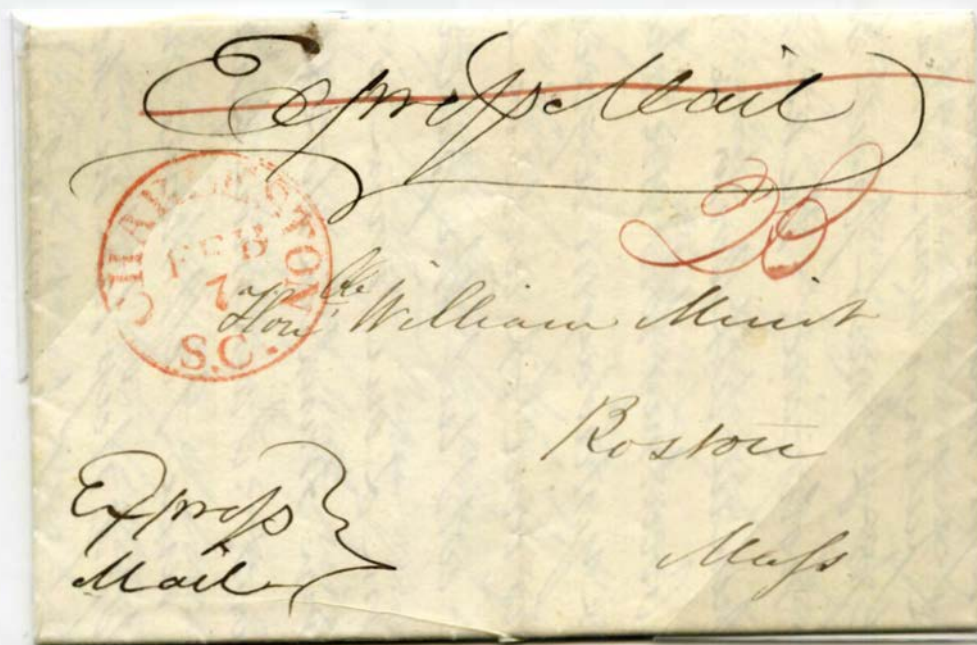 Expreſs Mail
CHARLESTON
FEB
7
S.C.
Honble William Minot
Boston
Expreſs
Mail
Maſs